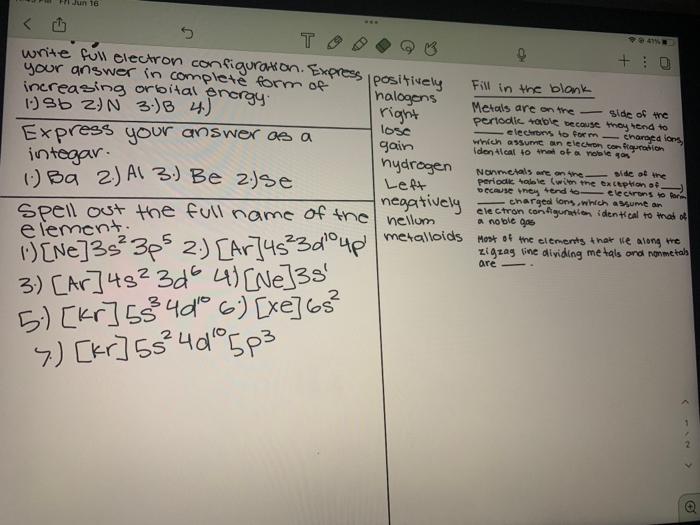 Fri Jun 16
41%
write full electron configuration. Express
your answer in complete form of
increasing orbital energy.
1.) Sb 2.) N 3.) B 4.)
Express your answer as a
integar.
1.) Ba 2.) Al 3.) Be 2.) Se
Spell out the full name of the
element.
1.) [Ne]3s² 3p⁵ 2.) [Ar]4s²3d¹⁰4p¹
3.) [Ar]4s² 3d⁶ 4.) [Ne]3s¹
5.) [Kr]5s³ 4d¹⁰ 6.) [xe]6s²
7.) [Kr]5s² 4d¹⁰ 5p³
positively
halogens
right
lose
gain
hydrogen
Left
negatively
hellum
metalloids
Fill in the blank
Metals are on the ___ side of the
periodic table because they tend to
___ electrons to form ___ charged ions,
which assume an electron configuration
identical to that of a noble gas
Nonmetals are on the ___ side of the
periodic table (with the exception of ___)
because they tend to ___ electrons to form
___ charged ions, which assume an
electron configuration identical to that of
a noble gas
Most of the elements that lie along the
zigzag line dividing metals and nonmetals
are ___.
1
2